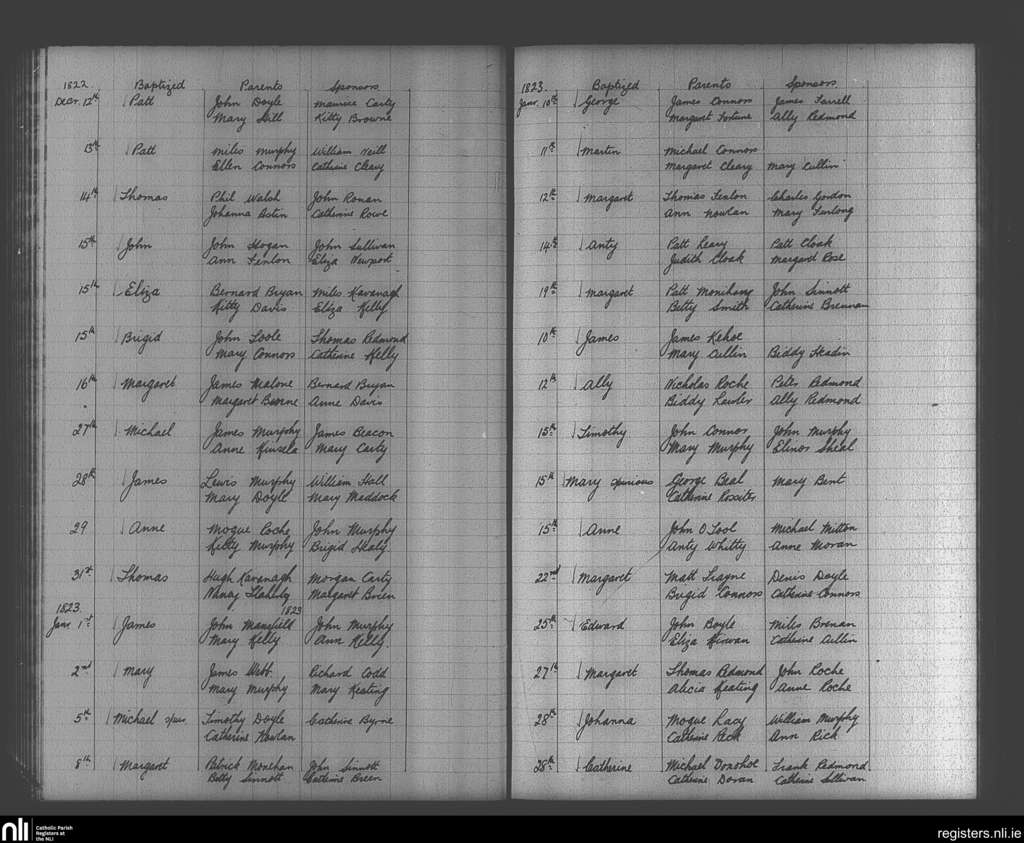 1822. Baptized Parents Sponsors
Decr. 12th Patt John Doyle Maurice Carty
Mary Hill Kitty Browne
13th Patt Miles Murphy William Neill
Ellen Connors Catherine Cleary
14th Thomas Phil Walsh John Ronan
Johanna Astin Catherine Rowe
15th John John Hogan John Sullivan
Ann Fenlon Eliza Newport
15th Eliza Bernard Bryan Miles Kavanagh
Kitty Davis Eliza Kelly
15th Brigid John Toole Thomas Redmond
Mary Connors Catherine Kelly
16th Margaret James Malone Bernard Bryan
Margaret Byrne Anne Davis
27th Michael James Murphy James Beacon
Anne Kinsela Mary Carty
28th James Lewis Murphy William Hall
Mary Doyle Mary Maddock
29 Anne Mogue Roche John Murphy
Kitty Murphy Brigid Healy
31st Thomas Hugh Kavanagh Morgan Carty
Nancy Flaherty Margaret Brien
1823. 1823
Janr 1st James John Mansfield John Murphy
Mary Kelly Ann Kelly
2nd Mary James Webb Richard Codd
Mary Murphy Mary Keating
5th Michael spur. Timothy Doyle Catherine Byrne
Catherine Nowlan
8th Margaret Patrick Monehan John Sinnott
Betty Sinnott Catherine Breen
1823. Baptized Parents Sponsors
Janr. 10th George James Connors James Farrell
Margaret Fortune Ally Redmond
11th Martin Michael Connors
Margaret Cleary Mary Cullin
12th Margaret Thomas Fenlon Charles Gordon
Ann Nowlan Mary Furlong
14th Anty Patt Leary Patt Cloak
Judith Cloak Margaret Rose
19th Margaret Patt Monihany John Sinnott
Betty Smith Catherine Brennan
10th James James Kehoe
Mary Cullin Biddy Headin
12th Ally Nicholas Roche Peter Redmond
Biddy Lawler Ally Redmond
15th Timothy John Connor John Murphy
Mary Murphy Elinor Sheal
15th Mary spurious George Beal Mary Bent
Catherine Rossiter
15th Anne John O Tool Michael Mitton
Anty Whitty Anne Moran
22nd Margaret Matt Trayne Denis Doyle
Brigid Connors Catherine Connors
25th Edward John Boyle Miles Brenan
Eliza Kirwan Catherine Cullin
27th Margaret Thomas Redmond John Roche
Alicia Keating Anne Roche
28th Johanna Mogue Lacy William Murphy
Catherine Reck Ann Rick
28th Catherine Michael Donohoe Frank Redmond
Catherine Doran Catherine Sullivan
nli Catholic Parish
Registers at
the NLI
registers.nli.ie